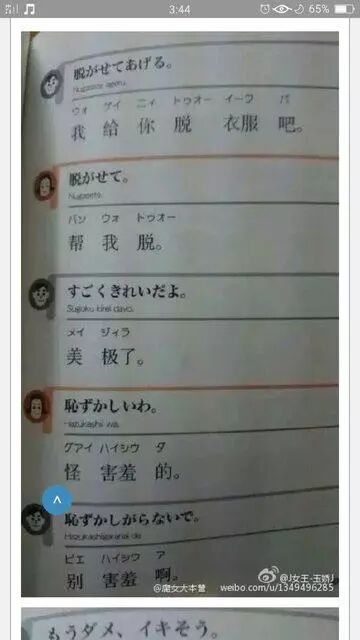 3:44
65%
脱がせてあげる。
Nugasete ageru.
ウォ ゲイ ニィ トゥオー イーフ バ
我 给 你 脱 衣服 吧。
脱がせて。
Nugasete.
バン ウォ トゥオー
帮 我 脱。
すごくきれいだよ。
Sugoku kirei dayo.
メイ ジィラ
美 极了。
恥ずかしいわ。
Hazukashii wa.
グアイ ハイシウ ダ
怪 害羞 的。
恥ずかしがらないで。
Hazukashigaranai de
ビエ ハイシウ ア
别 害羞 啊。
@J女王-玉娇J
@魔女大本营 weibo.com/u/1349496285
もうダメ、イキそう。